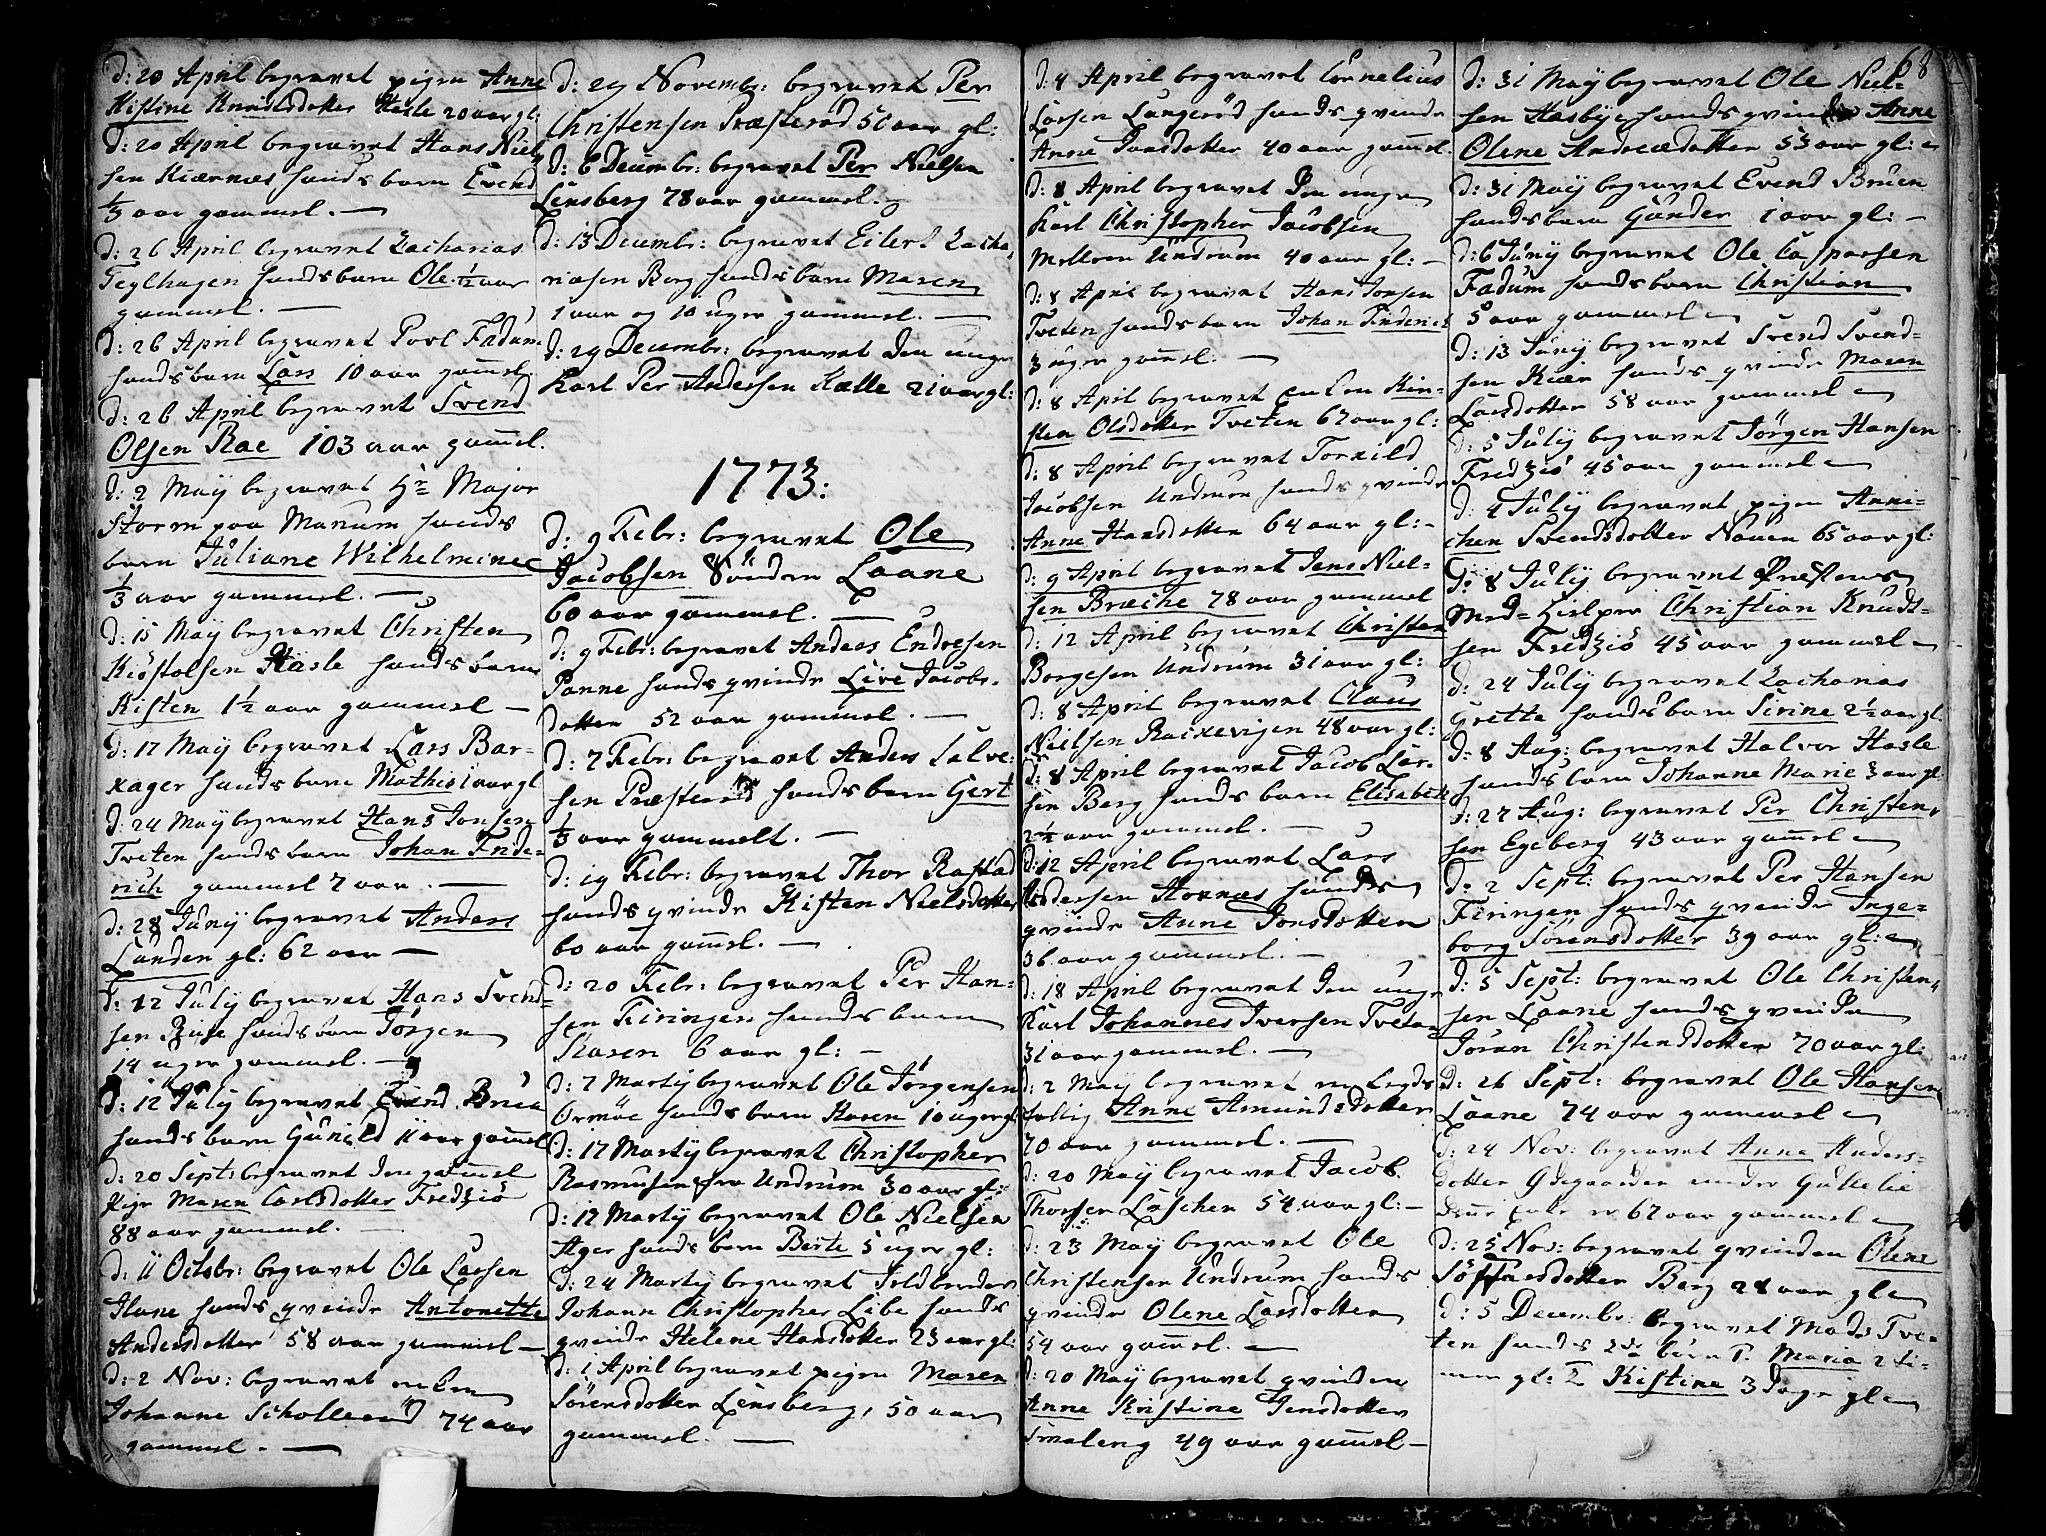 d: 20 April begravet pigen Anne
Kistine Knudsdotter Hasle 20 aar gl:
d: 20 April begravet Hans Niel
sen Kiærnæs hands barn Evend
⅓ aar gammel.
d: 26 April begravet Zacharias
Teglhagen hands barn Ole ½ aar
gammel.
d: 26 April begravet Povl Fadum
hands barn Lars 10 aar gam̄el.
d: 26 April begravet Svend
Olsen Rae 103 aar gam̄el.
d: 2 Maÿ begravet Hr Major
Storm paa Manum hands
barn Juliane Wilhelmine
⅓ aar gammel.
d: 15 Maÿ begravet Christen
Kiøstolsen Hasle hands barn
Kisten 1½ aar gammel
d: 17 Maÿ begravet Lars Bar-
kager hands barn Mathis 1 aar gl
d: 24 Maÿ begravet Hans Jonsen
Tveten hands barn Johan Fride-
rich gammel 7 aar.
d: 28 Junÿ begravet Anders
Lunden gl: 62 aar
d: 12 Julÿ begravet Hans Svend-
sen hands barn Jørgen
14 uger gammel.
d: 12 Julÿ begravet Evend Bruen
hands barn Gunild 11 aar gam̄el
d: 20 Sept: begravet den gam̄el
Pige Maren Carlsdotter Fredziø
88 aar gammel.
d: 11 Octobr: begravet Ole Larsen
Hane hands qvinde Antonette
Andersdotter 58 aar gammel
d: 2 Nov: begravet enken
Johanne Scholleröd 74 aar
gammel.
d: 29 Novembr: begravet Per
Christensen Præsteröd 50 aar gl:
d: 6 Decembr: begravet Per Nielsen
Lensberg 78 aar gammel.
d: 13 Decembr: begravet Eilert Zacha-
riasen Borg hands barn Maren
1 aar og 10 uger gammel.
d: 29 Decembr: begravet den unge
Karl Per Andersen Hætte 21 aar gl:
1773:
d: 9 Febr: begravet Ole
Jacobsen Sønden Laane
60 aar gammel.
d: 9 Febr: begravet Anders Endresen
Panne hands qvinde Live Jacobs-
dotter 52 aar gammel.
d: 7 Febr: begravet Anders Salve-
sen Præsteröd hands barn Gert
⅓ aar gammelt.
d: 19 Febr: begravet Thor Rastad
hands qvinde Kisten Nielsdotter
60 aar gam̄el.
d: 20 Febr: begravet Per Han-
sen Firingen hands barn
Karen 6 aar gl:
d: 7 Martÿ begravet Ole Jørgensen
Ormøe hands barn Karen 10 uger gl:
d: 17 Martÿ begravet Christopher
Rasmusen fra Undrum 30 aar gl:
d: 17 Martÿ begravet Ole Nielsen
Ager hands barn Berte 5 uger gl:
d: 24 Martÿ begravet Feldbereder
Johann Christopher Libe hands
qvinde Helene Hansdotter 23 aar gl:
d: 1 April begravet pigen Maren
Sørensdotter Lensberg, 50 aar
gammel.
d: 4 April begravet Cornelius
Larsen Langeröd hands qvinde
Anne Jonsdotter 40 aar gam̄el.
d: 8 April begravet Den unge
Karl Christopher Jacobsen
Mellem Undrum 40 aar gl:
d: 8 April begravet Hans Jonsen
Tveten hands barn Johan Friderich
3 uger gam̄el.
d: 8 April begravet Enken Kir-
sten Olsdotter Tveten 67 aar gl:
d: 8 April begravet Torkild
Jacobsen Undrum hands qvinde
Anne Hansdotter 64 aar gl:
d: 9 April begravet Jens Niel-
sen Bræche 78 aar gammel
d: 12 April begravet Christen
Borgesen Undrum 31 aar gl:
d: 8 April begravet Claus
Nielsen Rackevigen 48 aar gl:
d: 8 April begravet Jacob Lar-
sen Berg hands barn Elisabeth
2½ aar gammel.
d: 12 April begravet Lars
Pedersen Hornæs hands
qvinde Anne Jonsdotter
36 aar gammel.
d: 18 April begravet Den unge
Karl Johannes Iversen Tveten
31 aar gammel.
d: 2 Maÿ begravet en Legds
fattig Anne Amundsdotter
70 aar gammel.
d: 20 Maÿ begravet Jacob
Thorsen Løschen 54 aar gl:
d: 23 Maÿ begravet Ole
Christensen Undrum hands
qvinde Olene Larsdotter
54 aar gam̄el.
d: 20 Maÿ begravet qvinden
Anne Kristine Jensdotter
Smaleng 49 aar gam̄el
68
d: 31 Maÿ begravet Ole Niel-
sen Hasbye hands qvinde Anne
Olene Andreædotter 53 aar gl:
d: 31 Maÿ begravet Evend Bruen
hands barn Gunder 1 aar gl:
d: 6 Junÿ begravet Ole Casparsen
Fadum hands barn Christian
5 aar gammel
d: 13 Junÿ begravet Svend Svend-
sen Kiær hands qvinde Maren
Larsdotter 58 aar gammel
d: 5 Julÿ begravet Jørgen Hansen
Fredziø 45 aar gammel
d: 4 Julÿ begravet pigen Anni-
chen Svendsdotter Nauen 65 aar gl:
d: 8 Julÿ begravet Præstens
Med-Hielper Christian Knuds-
sen Fredziø 45 aar gammel
d: 24 Julÿ begravet Zacharias
Grette hands barn Sirine 2½ aar gl
d: 8 Aug: begravet Halvor Hasle
hands barn Johanne Marie 3 aar gl
d: 27 Aug: begravet Per Christen-
sen Egeberg 43 aar gam̄el
d: 2 Sept: begravet Per Hansen
Firingen hands qvinde Inge-
borg Sørensdotter 39 aar gl:
d: 5 Sept: begravet Ole Christen-
sen Laane hands qvinde
Joran Christensdotter 70 aar gl:
d: 26 Sept: begravet Ole Hansen
Laane 74 aar gammel
d: 24 Nov: begravet Anne Anders-
dotter Ødegaarden under Gullelie
67 aar gammel
d: 25 Nov: begravet qvinden Olene
Søffrensdotter Berg 28 aar gl
d: 5 Decembr: begravet Mads Tve-
ten hands 2de børn T. Maria 2 ti-
mer gl: & Kistine 3 Dage gl